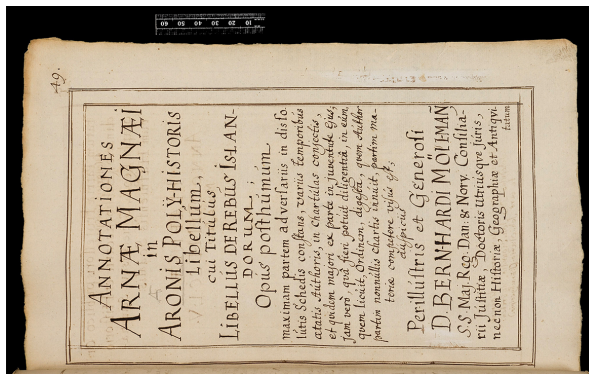 49.
ANNOTATIONES
ARNÆ MAGNÆI
in
ARONIS POLY-HISTORIS
Libellum,
cui Titulus,
LIBELLUS DE REBUS ISLAN-
DORUM;
Opus posthumum
maximam partem adversariis in disso
lutis Schedis constans, variis temporibus
ætatis Authoris, in Chartulas conjectis,
et quidem majori ex parte in juventute Ejus;
jam vero, quâ fieri potuit diligentiâ, in eum,
quem licuit, Ordinem, digesta, quem Author
partim nonnullis chartis innuit, partim ma-
teriæ competere visus est;
auspiciis
Perillustris et Generosi
D. BERNHARDI MÖLLMAÑ
S.S. Maj. Reg. Dan. & Norv. Consilia-
rii Justitiæ, Doctoris Utriusqve Juris,
necnon Historiæ, Geographiæ et Antiqvi
tatum
10 20 30 40 50 60